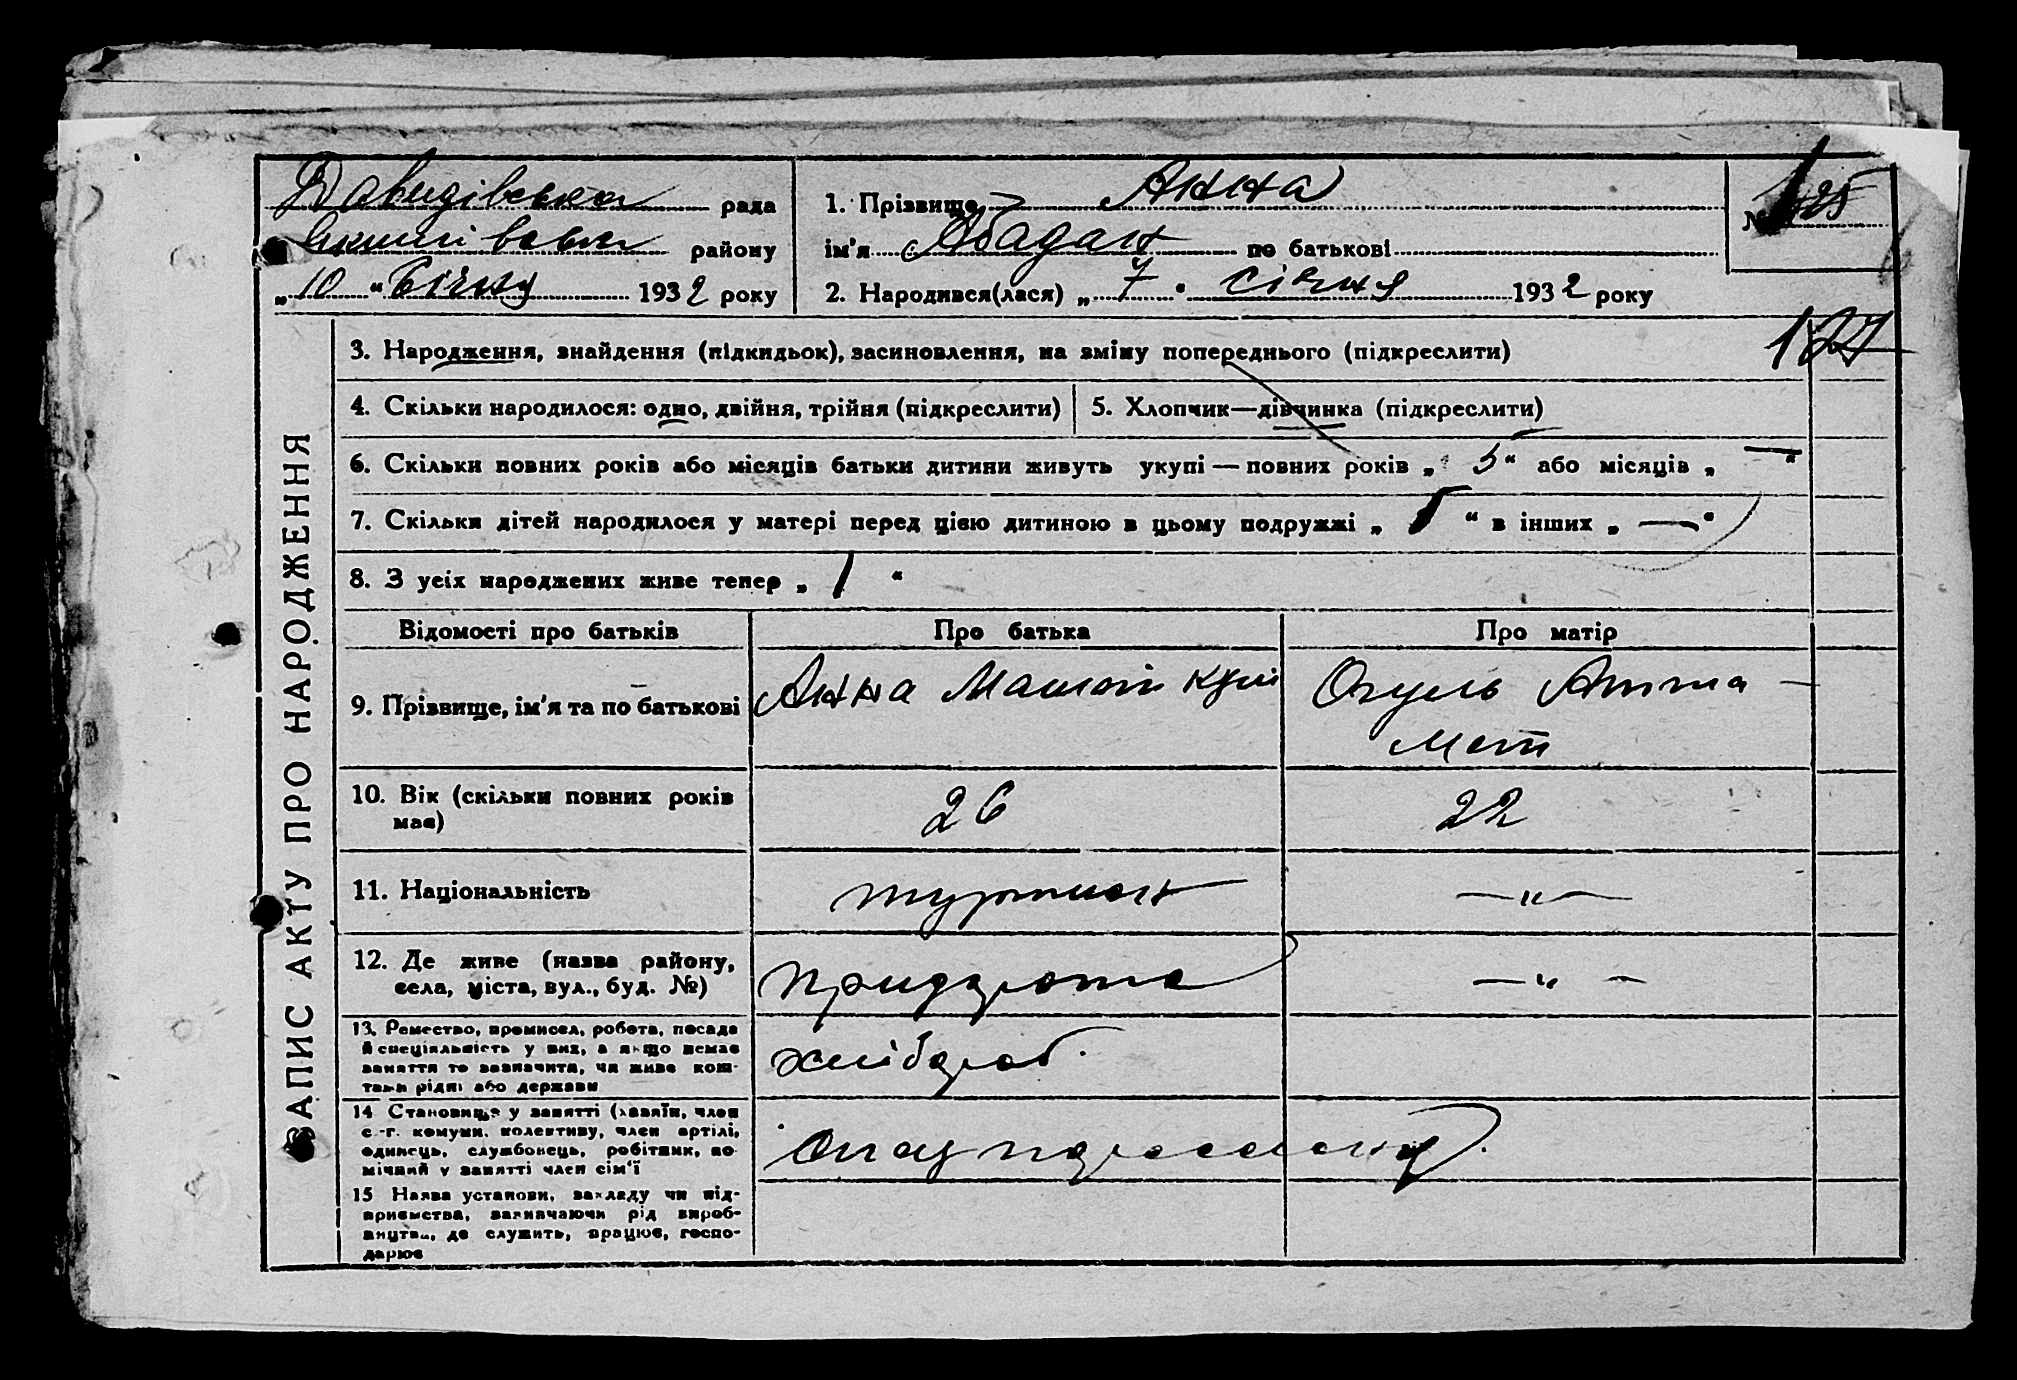 Давидівська рада
Якимівська району
„10“ Січня 1932 року
1. Прізвище Анна
ім'я Абадан по батькові
2. Народився(лася) „7“ січня 1932 року
№ 125
127
ЗАПИС АКТУ ПРО НАРОДЖЕННЯ
3. Народження, знайдення (підкидьок), засиновлення, на зміну попереднього (підкреслити)
4. Скільки народилося: одно, двійня, трійня (підкреслити)
5. Хлопчик—дівчинка (підкреслити)
6. Скільки повних років або місяців батьки дитини живуть укупі — повних років „5“ або місяців „—“
7. Скільки дітей народилося у матері перед цією дитиною в цьому подружжі „ “ в інших „—“
8. З усіх народжених живе тепер „1“
Відомості про батьків
Про батька
Про матір
9. Прізвище, ім'я та по батькові
Анна
Огуль
10. Вік (скільки повних років
має)
26
22
11. Національність
туркмен
—„—
12. Де живе (назва району,
села, міста, вул., буд. №)
—„—
13. Ремество, промисел, робота, посада
й спеціяльність у них, а якщо немає
заняття то зазначити, чи живе кош-
тами рідні або держави
хлібороб.
14 Становище у занятті (хазяїн, член
с.-г. комуни, колективу, член артілі,
одинець, службовець, робітник, по-
мічний у занятті член сім'ї
15 Назва установи, закладу чи під-
приємства, зазначаючи рід вироб-
ництва, де служить, працює, госпо-
дарює